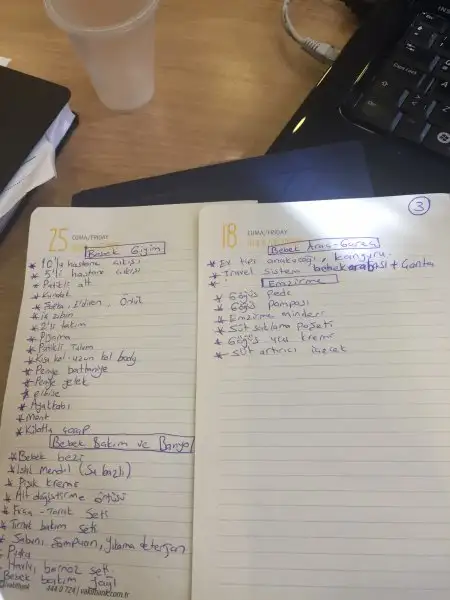 25 CUMA/FRIDAY
Bebek Giyim
* 10'lu hastane çıkışı
* 5'li hastane çıkışı
* Patikli alt
* Kundak
* Şapka, Eldiven, Önlük
* iç zıbın
* 2'li takım
* Pijama
* Patikli Tulum
* Kısa kol-uzun kol body
* Penye battaniye
* Penye yelek
* elbise
* Ayakkabı
* Mont
* Külotlu çorap
Bebek Bakım ve Banyo
* Bebek bezi
* Islak Mendil (Su bazlı)
* Pişik kremi
* Alt değiştirme örtüsü
* Fırça - Tarak Seti
* Tırnak bakım seti
* Sabun, Şampuan, Yıkama deterjan
- Puka
- Havlu, bornoz seti
Bebek bakım yağı
VakıfBank 444 0 724 | vakifbank.com.tr
3
18 CUMA/FRIDAY
Bebek Araç-Gereç
* Ev tipi anakucağı, kanguru
* Travel sistem bebek arabası + Çanta
*
Emzirme
* Göğüs Pedi
* Göğüs pompası
* Emzirme minderi
* Süt saklama poşeti
* Göğüs ucu kremi
* Süt artırıcı içecek
Caps Lock
Ctrl